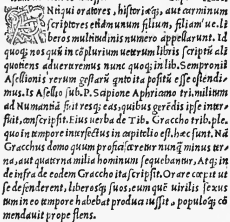 ANtiqui oratores, historiæq́;, aut carminum
scriptores etiam unum filium, filiam'ue li
beros multitudinis numero appellarunt. Id
quoq; nos quum in cōplurium ueterum libris scriptū ali
quoties aduerteremus nunc quoq; in lib. Sempronij
Asellionis rerum gestarū quinto ita positū esse offendi=
mus. Is Asello sub. P. Scipione Aphricano tri. militum
ad Numantiā fuit resq́; eas, quibus gerēdis ipse inter=
fuit, conscripsit. Eius uerba de Tib. Graccho trib. ple.
quo in tempore interfectus in capitolio est, hæc sunt. Nā
Gracchus domo quum proficisceretur nunquā minus ter=
na, aut quaterna milia hominum sequebantur, Atq; in
de infra de eodem Graccho ita scripsit. Orare cœpit ut
se defenderent, liberosq́; suos, eum quē uirilis sexus
tum in eo tempore habebat produci iussit, populoq; com
mendauit prope flens.